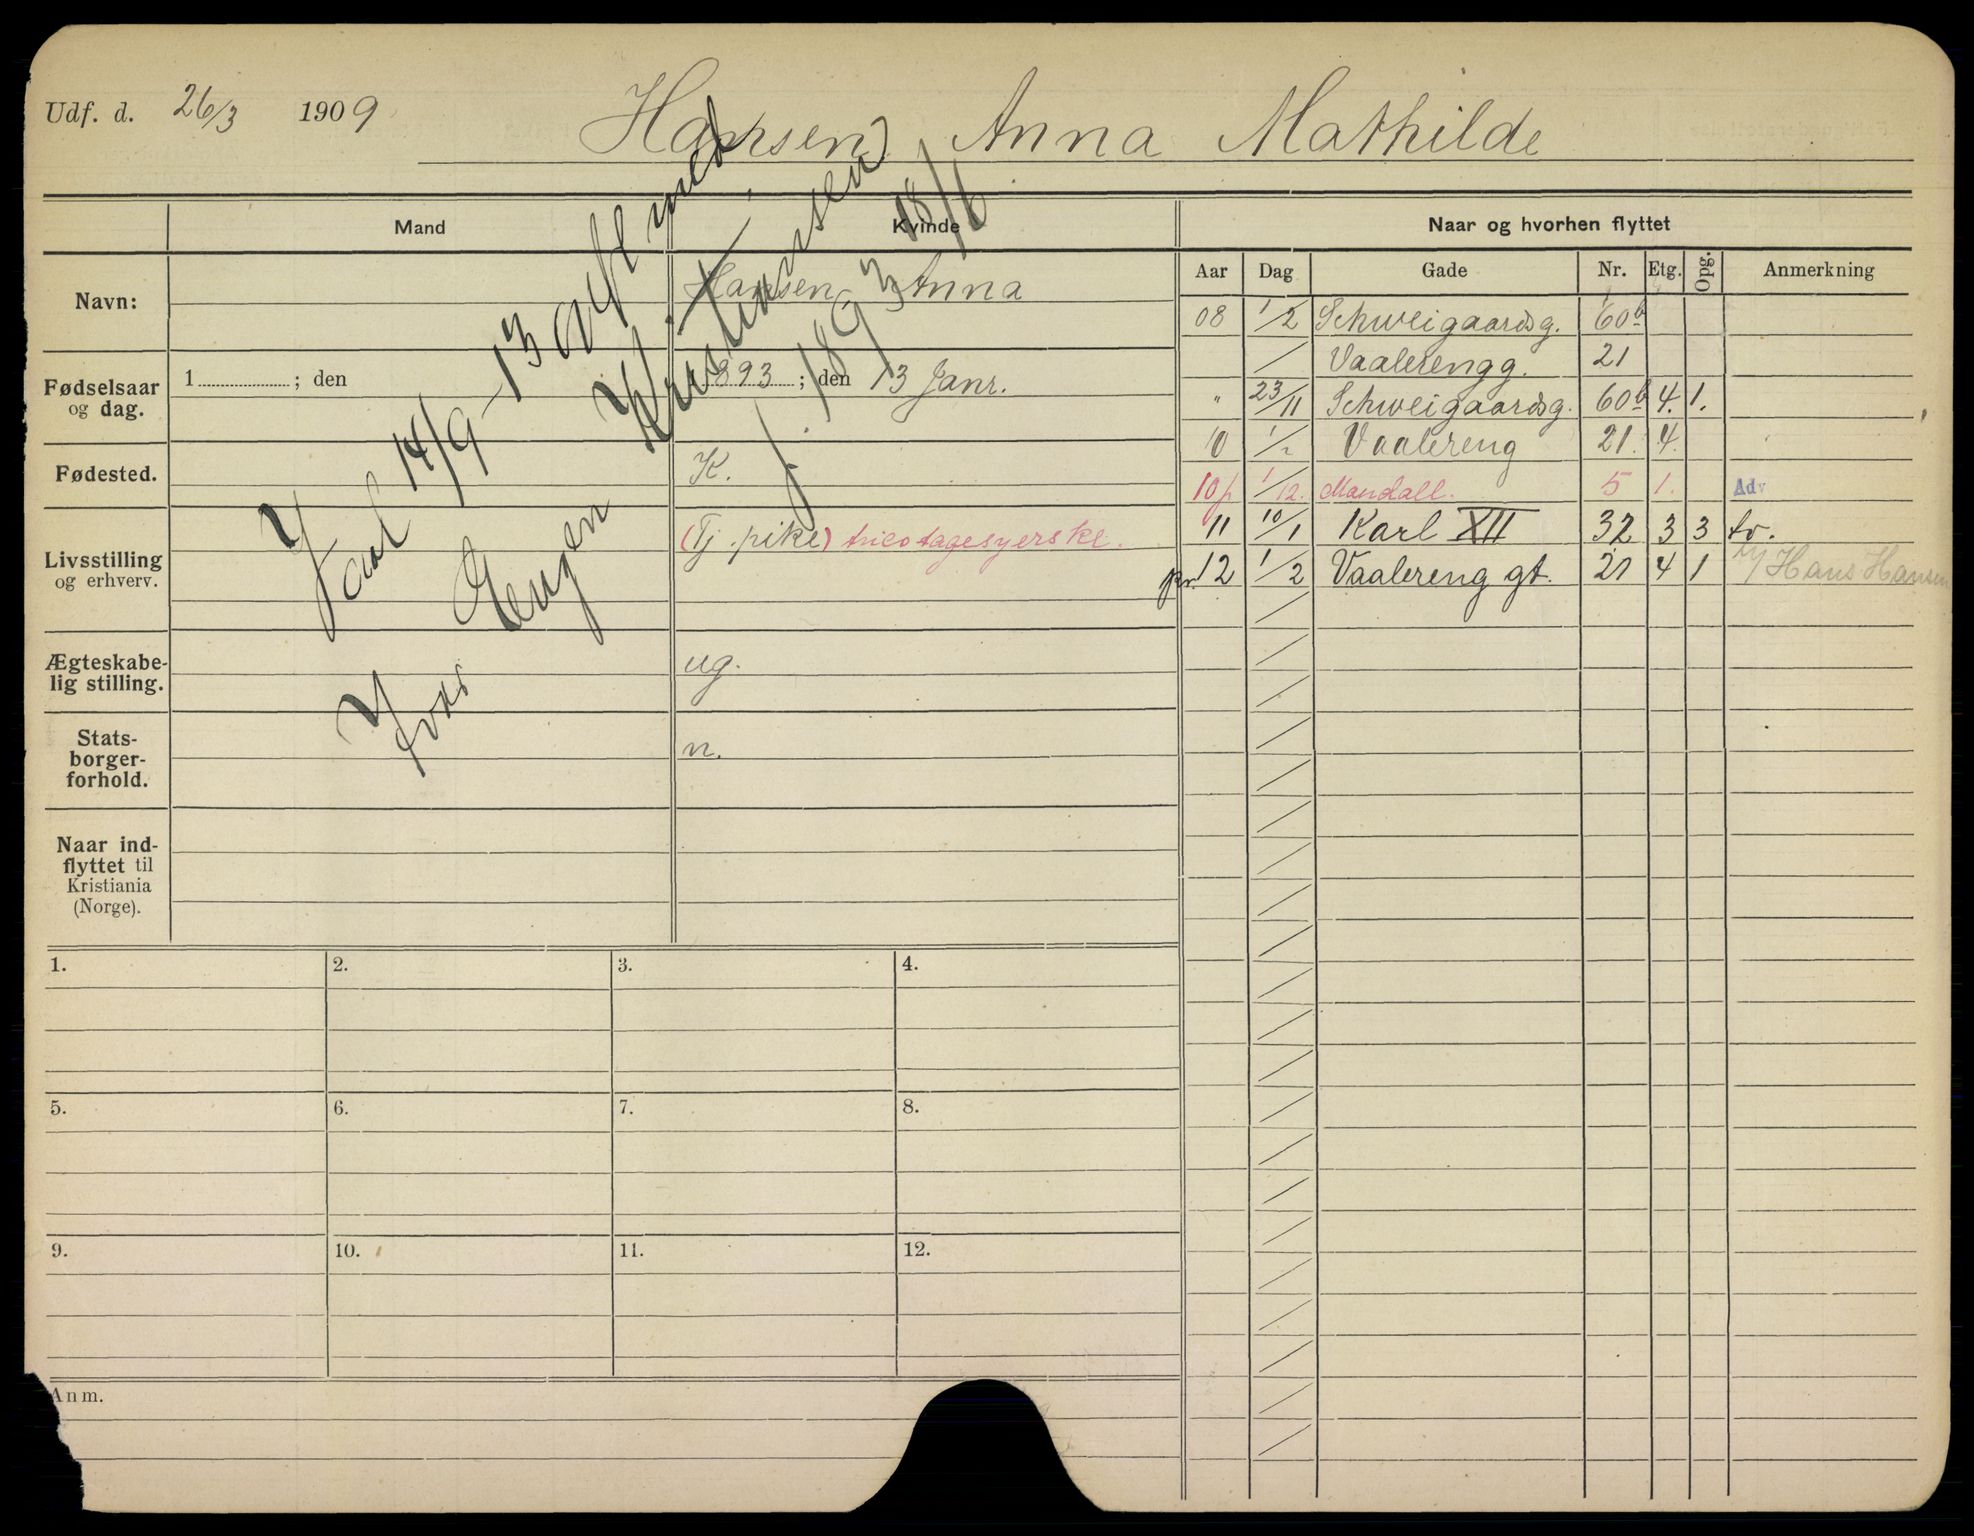 Udf. d. 26/3 1909 Hansen, Anna Mathilde
Mand Kvinde Naar og hvorhen flyttet
Aar Dag Gade Nr. Etg. Opg. Anmerkning
Navn: Hansen, Anna
Fødselsaar og dag. 1 ; den 1893 ; den 13 Janr.
Fødested. K.
Livsstilling og erhverv. (Tj. pike) tricotagesyerske.
Ægteskabelig stilling. ug.
Statsborgerforhold. n.
Naar indflyttet til Kristiania (Norge).
14/9-13 gift med
Karl Eugen Kristiansen
f. 1893 18/6
08 1/2 Schweigaardsg. 60b
/ Vaalerengg. 21
" 23/11 Schweigaardsg. 60b 4. 1.
10 1/2 Vaalereng 21. 4.
10 1/12. Mandall. 5 1. Adv
11 10/1 Karl XII 32 3 3 tv.
12 1/2 Vaalereng gt. 21 4 1 Hans Hansen
1. 2. 3. 4.
5. 6. 7. 8.
9. 10. 11. 12.
Anm.